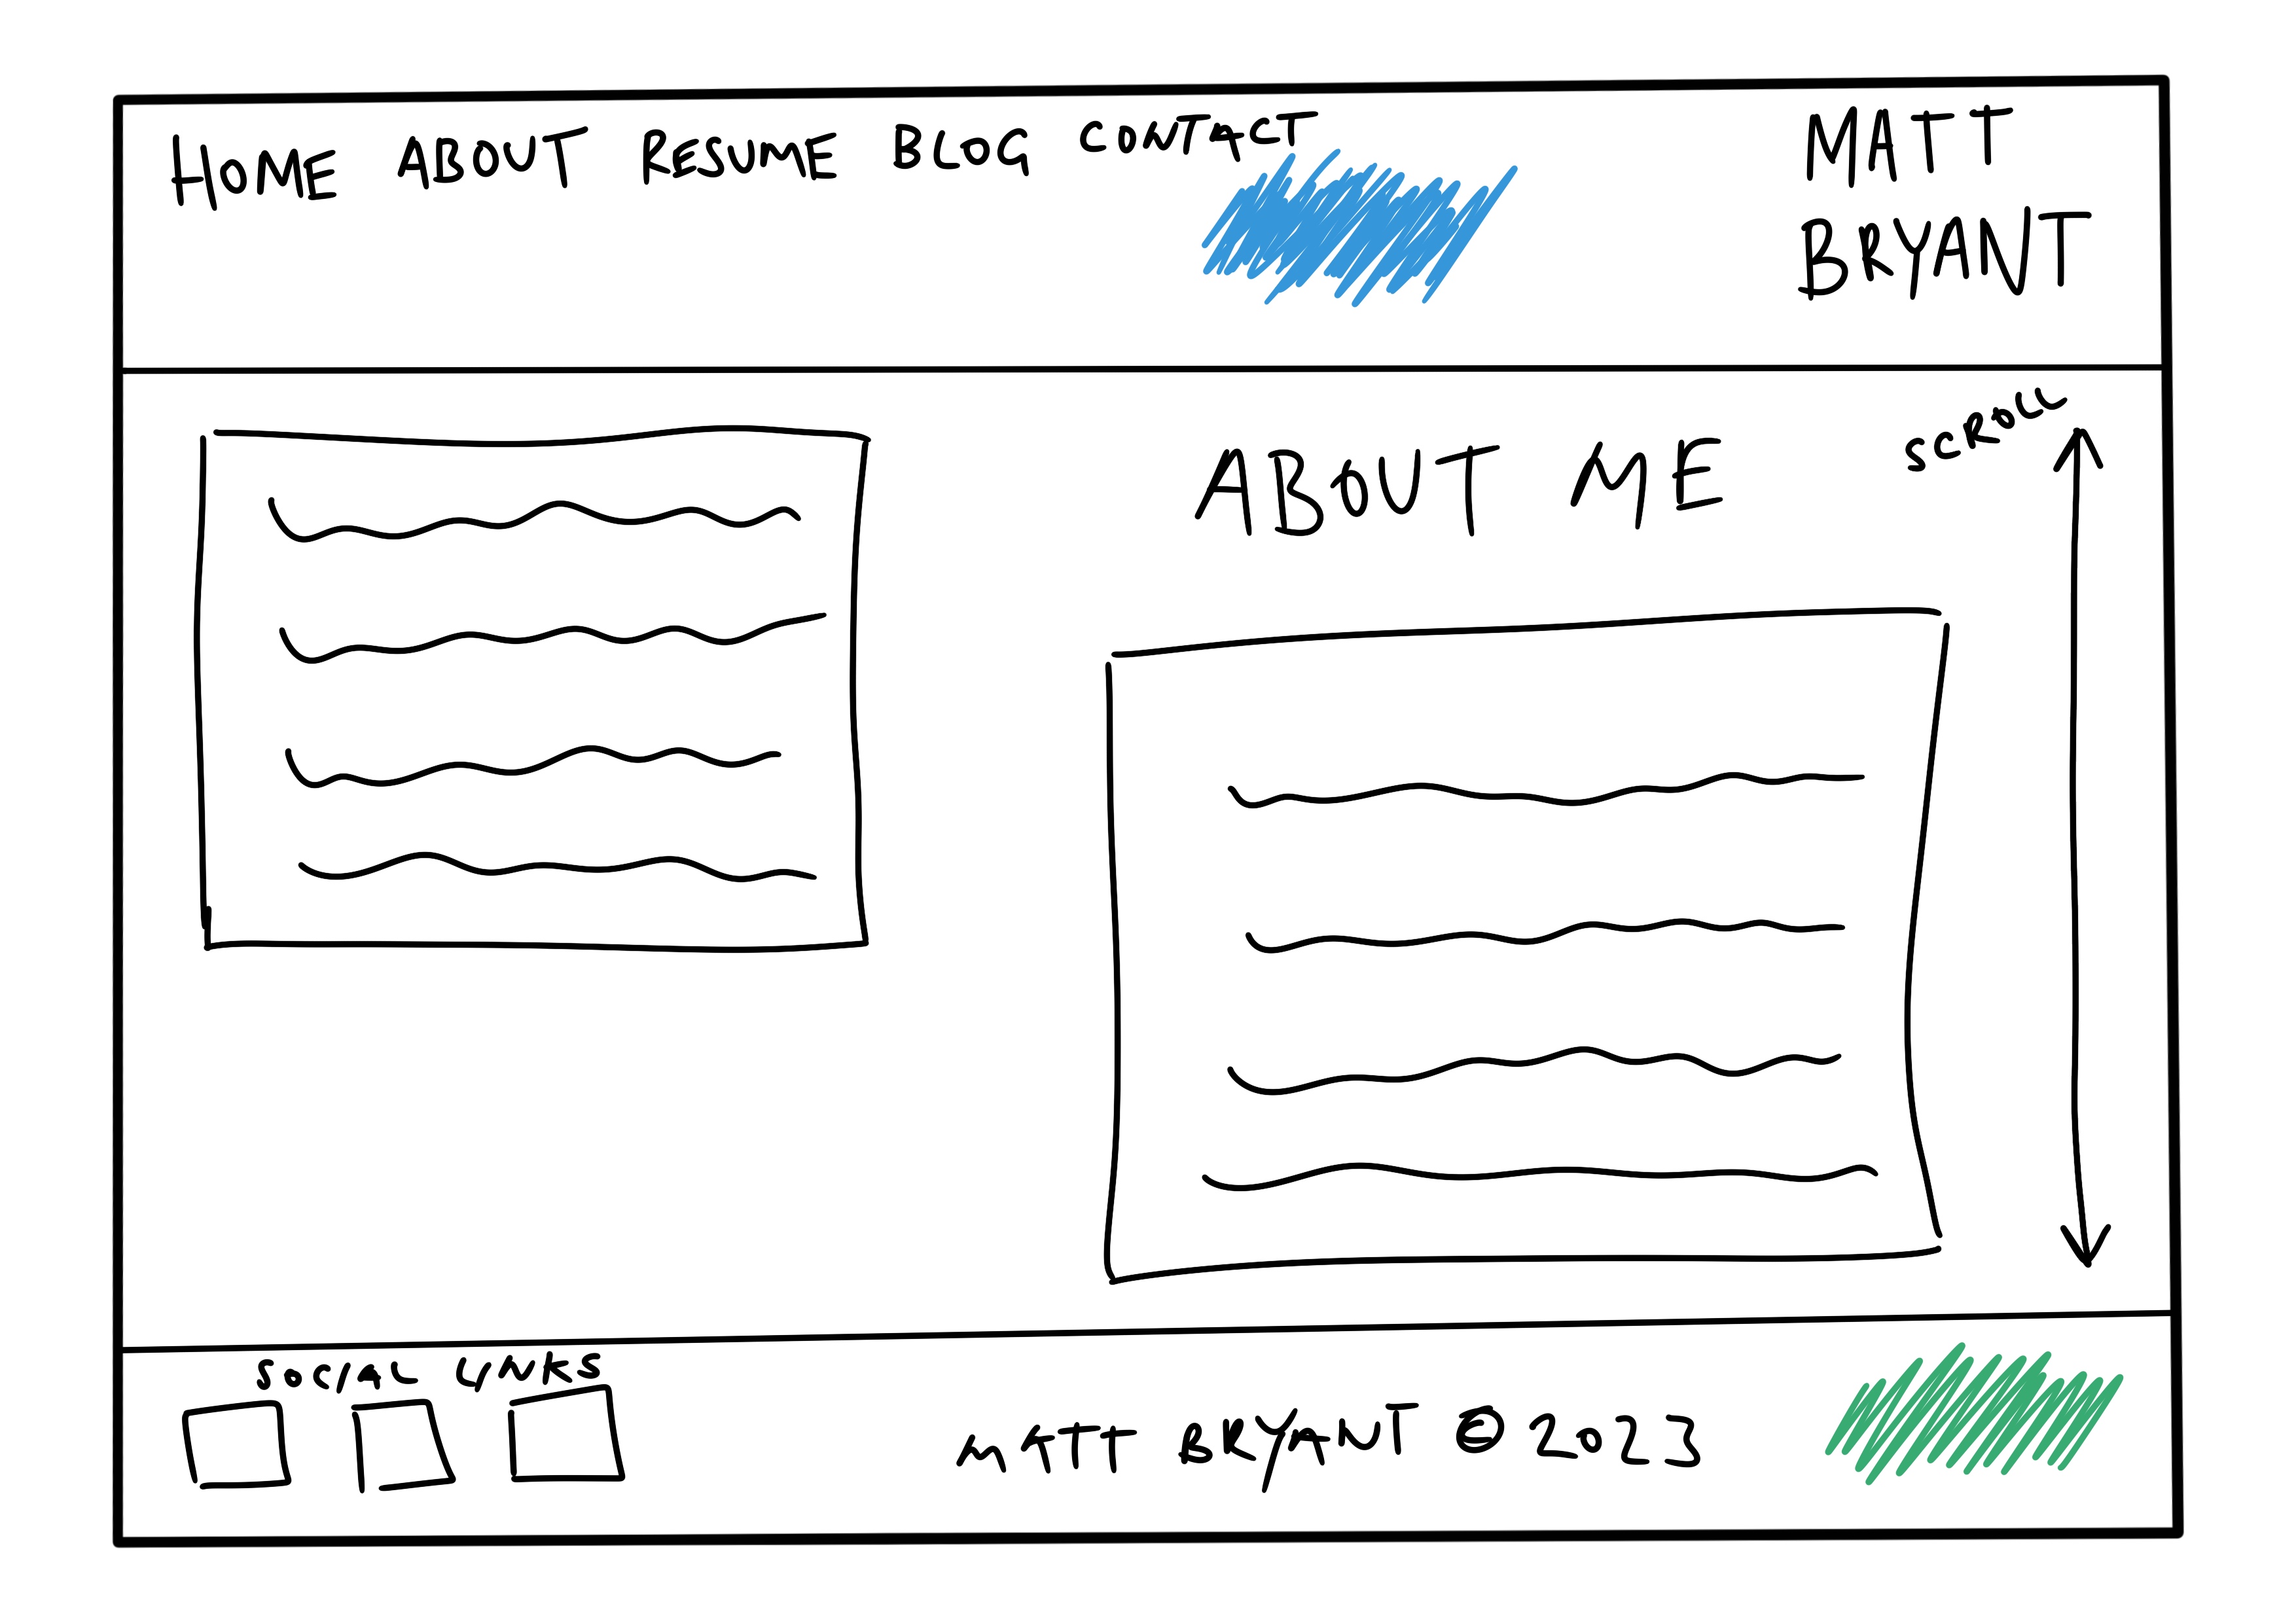 HOME ABOUT RESUME BLOG CONTACT
MATT
BRYANT
ABOUT ME
SCROLL
SOCIAL LINKS
MATT BRYANT © 2023